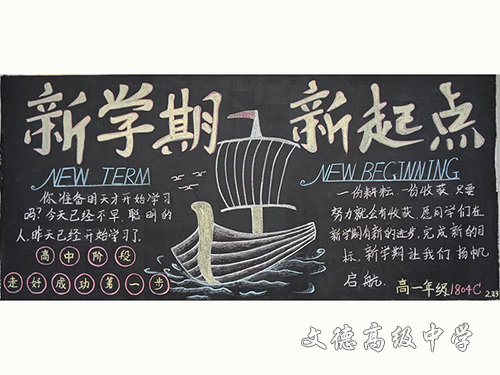 新学期 新起点
NEW TERM
你准备明天才开始学习
吗?今天已经不早,聪明的
人,昨天已经开始学习了.
高中阶段
走好成功第一步
NEW BEGINNING
一份耕耘,一份收获,只要
努力就会有收获,愿同学们在
新学期有新的进步,完成新的目
标.新学期让我们扬帆
启航.
高一年级1804C
2.23
文德高级中学